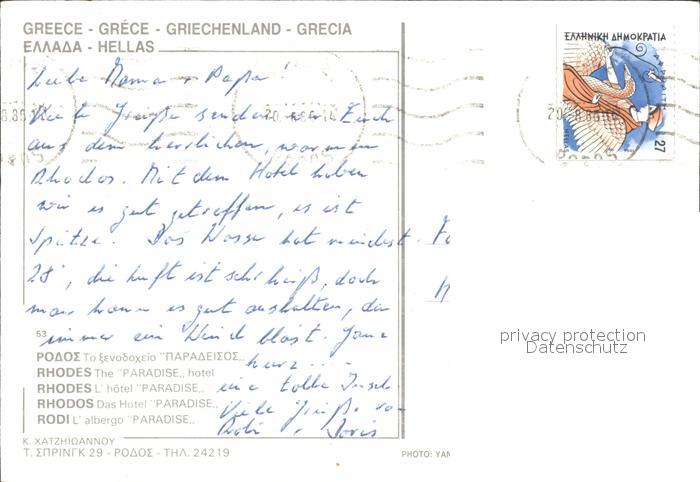 GREECE - GRÉCE - GRIECHENLAND - GRECIA
ΕΛΛΑΔΑ - HELLAS
ΕΛΛΗΝΙΚΗ ΔΗΜΟΚΡΑΤΙΑ
27
Liebe Mama + Papa!
Viele Grüße senden wir Euch
aus dem herrlichen, warmen
Rhodos. Mit dem Hotel haben
wir es gut getroffen, es ist
Spitze. Das Wasser hat mindest.
28°, die Luft ist sehr heiß, doch
man kann es gut aushalten, da
immer ein Wind bläst. Ganz
kurz ...
eine tolle Insel
Viele Grüße von
+ Doris
53
ΡΟΔΟΣ Το ξενοδοχείο ¨ΠΑΡΑΔΕΙΣΟΣ,,
RHODES The ¨PARADISE,, hotel
RHODES L' hôtel ¨PARADISE,,
RHODOS Das Hotel ¨PARADISE,,
RODI L' albergo ¨PARADISE,,
Κ. ΧΑΤΖΗΙΩΑΝΝΟΥ
Τ. ΣΠΡΙΝΓΚ 29 - ΡΟΔΟΣ - ΤΗΛ. 24219
PHOTO: YAN
privacy protection
Datenschutz